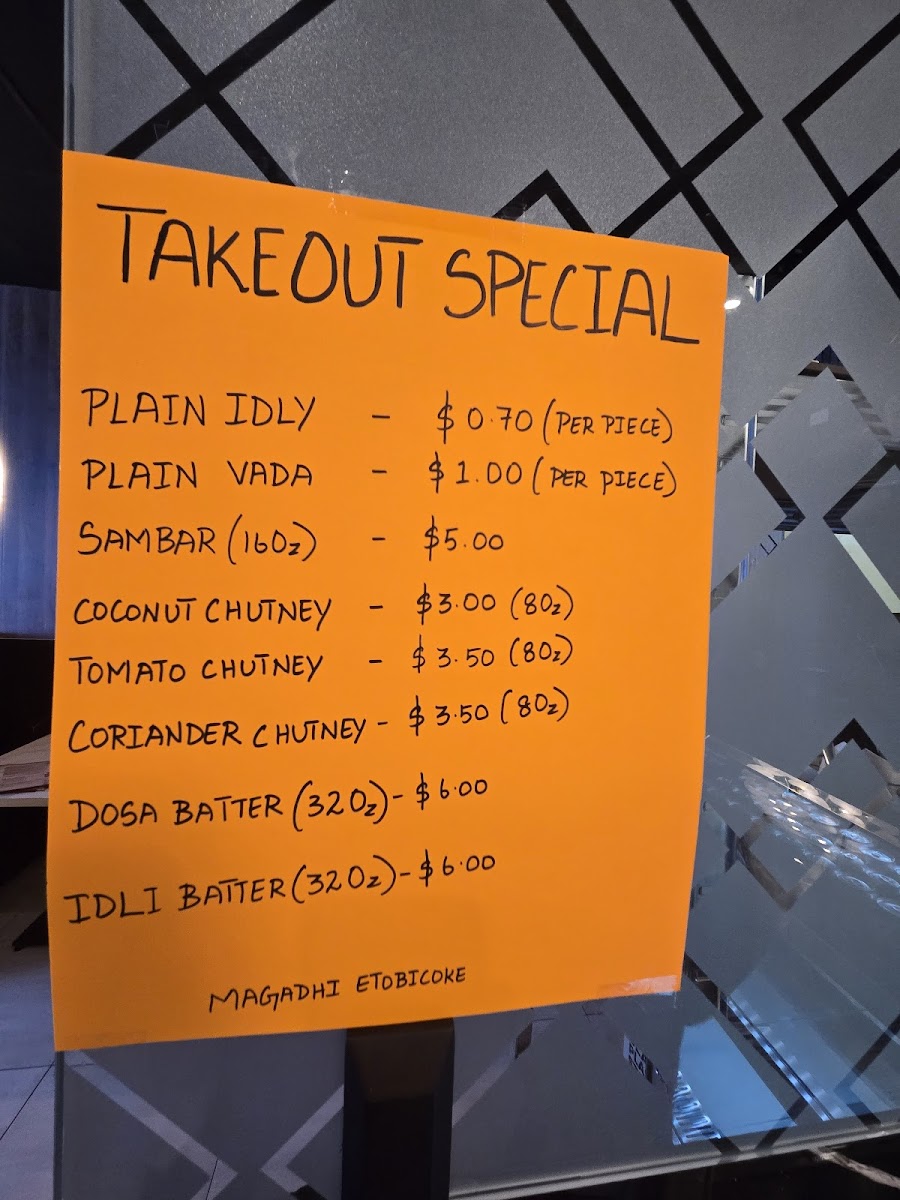 TAKEOUT SPECIAL
PLAIN IDLY - $ 0.70 (PER PIECE)
PLAIN VADA - $ 1.00 (PER PIECE)
SAMBAR (16Oz) - $5.00
COCONUT CHUTNEY - $3.00 (8Oz)
TOMATO CHUTNEY - $ 3.50 (8Oz)
CORIANDER CHUTNEY - $ 3.50 (8Oz)
DOSA BATTER (32Oz) - $ 6.00
IDLI BATTER (32Oz) - $ 6.00
MAGADHI ETOBICOKE